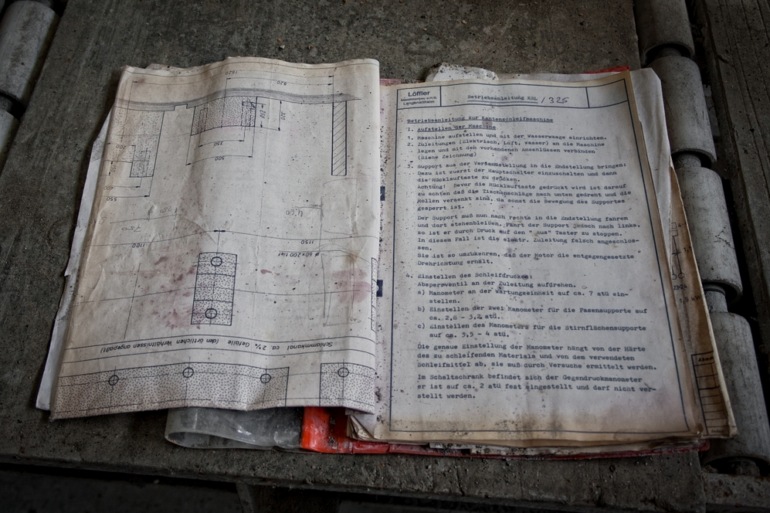 Schlammkanal ca. 2% Gefälle (den örtlichen Verhältnissen angepaßt)
Ø 60 x 200 tief
1150
Löffler
Maschinenbau
Langenaltheim
Betriebsanleitung KSL / 325
Betriebsanleitung zur Kantenschleifmaschine
1. Aufstellen der Maschine
1. Maschine aufstellen und mit der Wasserwaage einrichten.
2. Zuleitungen (Elektrisch, Luft, Wasser) an die Maschine
legen und mit den vorhandenen Anschlüssen verbinden
(Siehe Zeichnung)
3. Support aus der Versandstellung in die Endstellung bringen:
Dazu ist zuerst der Hauptschalter einzuschalten und dann
die Rücklauftaste zu drücken.
Achtung! Bevor die Rücklauftaste gedrückt wird ist darauf
zu achten daß die Tischanschläge nach unten gedreht und die
Rollen versenkt sind, da sonst die Bewegung des Supportes
gesperrt ist.
Der Support muß nun nach rechts in die Endstellung fahren
und dort stehenbleiben. Fährt der Support jedoch nach links,
so ist er durch Druck auf den "Aus" Taster zu stoppen.
In diesem Fall ist die elektr. Zuleitung falsch angeschlos-
sen.
Sie ist so umzuklemmen, daß der Motor die entgegengesetzte
Drehrichtung erhält.
4. Einstellen des Schleifdruckes:
Absperrventil an der Zuleitung aufdrehen.
a) Manometer an der Wartungseinheit auf ca. 7 atü ein-
stellen.
b) Einstellen der zwei Manometer für die Fasensupporte auf
ca. 2,8 - 3,2 atü.
c) Einstellen des Manometers für die Stirnflächensupporte
auf ca. 3,5 - 4 atü.
Die genaue Einstellung der Manometer hängt von der Härte
des zu schleifenden Materials und von dem verwendeten
Schleifmittel ab, sie muß durch Versuche ermittelt werden.
Im Schaltschrank befindet sich der Gegendruckmanometer
er ist auf ca. 2 atü fest eingestellt und darf nicht ver-
stellt werden.